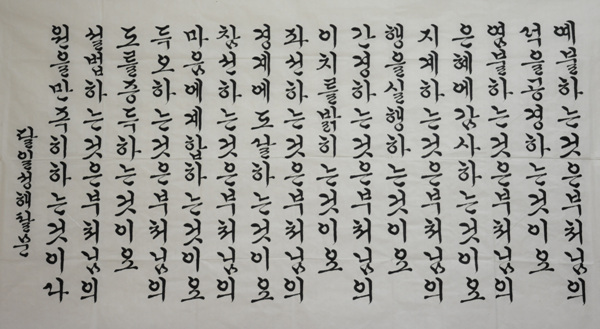 예불하는것은부처님의
덕을공경하는것이오
염불하는것은부처님의
은혜에감사하는것이오
지계하는것은부처님의
행을실행하는것이오
간경하는것은부처님의
이치를밝히는것이오
좌선하는것은부처님의
경계에도달하는것이오
참선하는것은부처님의
마음에계합하는것이오
득오하는것은부처님의
도를증득하는것이오
설법하는것은부처님의
원을만족히하는것이라